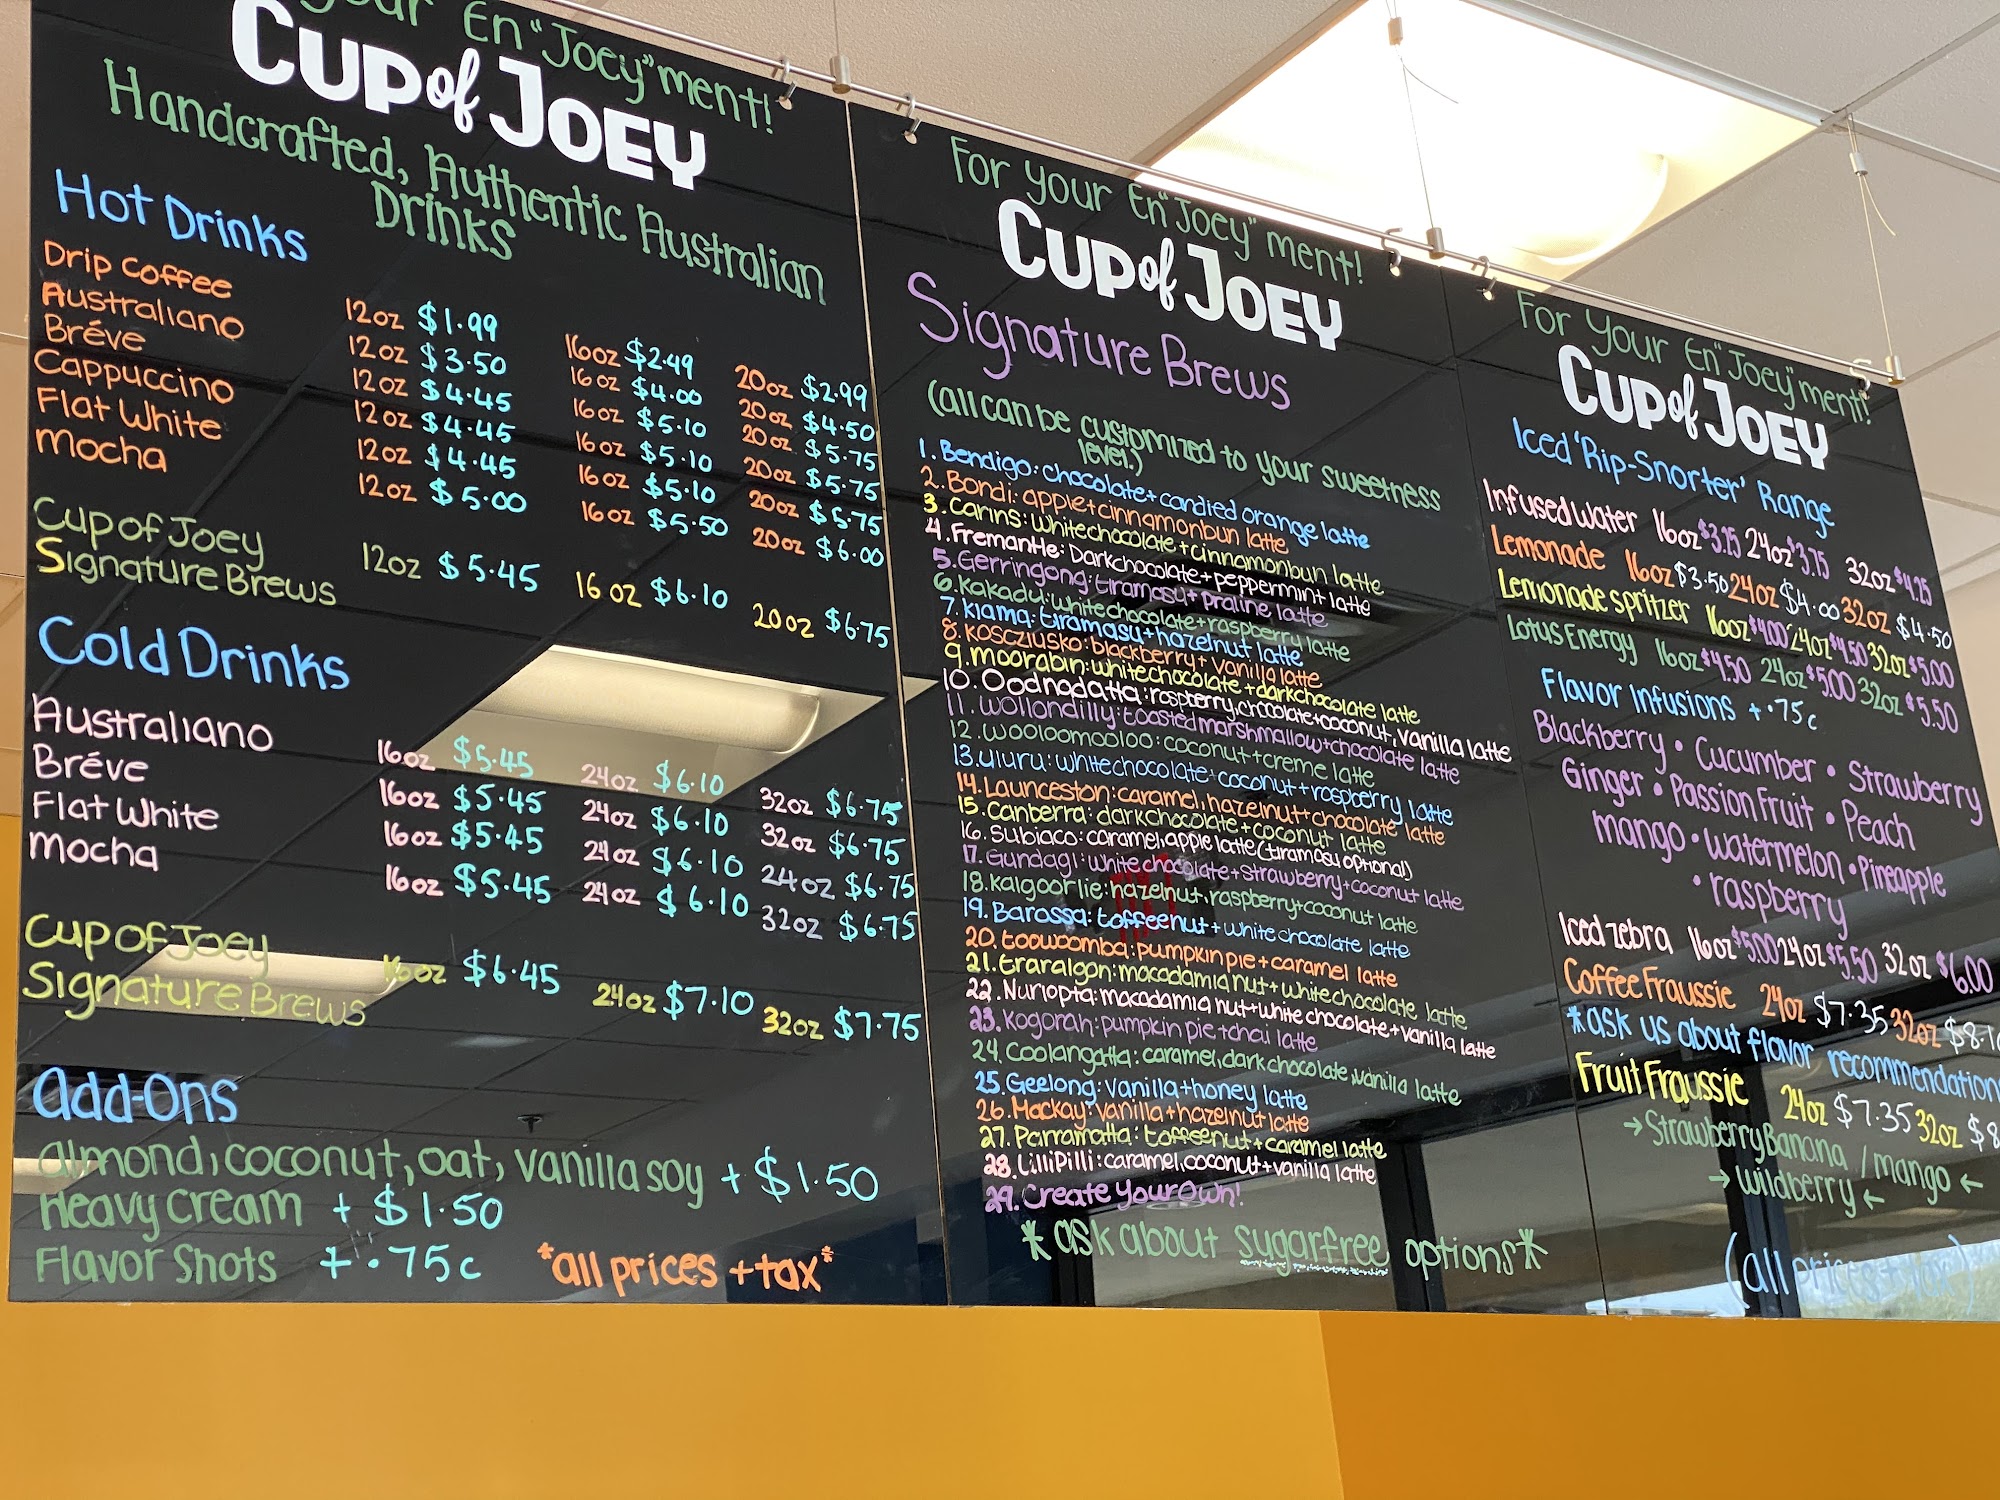 your En"Joey"ment!
CUP of JOEY
Handcrafted, Authentic Australian
Drinks
Hot Drinks
Drip Coffee 12oz $1.99 16oz $2.49 20oz $2.99
Australiano 12oz $3.50 16oz $4.00 20oz $4.50
Bréve 12oz $4.45 16oz $5.10 20oz $5.75
Cappuccino 12oz $4.45 16oz $5.10 20oz $5.75
Flat White 12oz $4.45 16oz $5.10 20oz $5.75
Mocha 12oz $5.00 16oz $5.50 20oz $6.00
Cup of Joey
Signature Brews 12oz $5.45 16oz $6.10 20oz $6.75
Cold Drinks
Australiano 16oz $5.45 24oz $6.10 32oz $6.75
Bréve 16oz $5.45 24oz $6.10 32oz $6.75
Flat White 16oz $5.45 24oz $6.10 24oz $6.75
Mocha 16oz $5.45 24oz $6.10 32oz $6.75
Cup of Joey
Signature Brews 16oz $6.45 24oz $7.10 32oz $7.75
Add-Ons
almond, coconut, oat, vanilla soy + $1.50
Heavy Cream + $1.50
Flavor Shots + .75c
*all prices + tax*
For your En"Joey"ment!
CUP of JOEY
Signature Brews
(all can be customized to your sweetness
level.)
1. Bendigo: chocolate + candied orange latte
2. Bondi: apple + cinnamonbun latte
3. Carins: White chocolate + cinnamonbun latte
4. Fremantle: Dark chocolate + peppermint latte
5. Gerringong: tiramasu + praline latte
6. Kakadu: white chocolate + raspberry latte
7. Kiama: tiramasu + hazelnut latte
8. Koscziusko: blackberry + vanilla latte
9. Moorabin: white chocolate + dark chocolate latte
10. Oodnadatta: raspberry, chocolate + coconut, vanilla latte
11. Wollondilly: toasted marshmallow + chocolate latte
12. Wooloomooloo: coconut + creme latte
13. Uluru: white chocolate + coconut + raspberry latte
14. Launceston: caramel, hazelnut + chocolate latte
15. Canberra: dark chocolate + coconut latte
16. Subiaco: caramel, apple latte (tiramasu optional)
17. Gundagi: white chocolate + strawberry + coconut latte
18. Kalgoorlie: hazelnut, raspberry + coconut latte
19. Barossa: toffeenut + white chocolate latte
20. Toowoomba: pumpkin pie + caramel latte
21. Traralgon: macadamia nut + white chocolate latte
22. Nuriopta: macadamia nut + white chocolate + vanilla latte
23. Kogorah: pumpkin pie + chai latte
24. Coolangatta: caramel, dark chocolate, vanilla latte
25. Geelong: vanilla + honey latte
26. Mackay: vanilla + hazelnut latte
27. Parramatta: toffeenut + caramel latte
28. LilliPilli: caramel, coconut + vanilla latte
29. Create Your Own!
*ask about sugarfree options*
For your En"Joey"ment!
CUP of JOEY
Iced 'Rip-Snorter' Range
Infused water 16oz $3.25 24oz $3.75 32oz $4.25
Lemonade 16oz $3.50 24oz $4.00 32oz $4.50
Lemonade Spritzer 16oz $4.00 24oz $4.50 32oz $5.00
Lotus Energy 16oz $4.50 24oz $5.00 32oz $5.50
Flavor Infusions + .75c
Blackberry • Cucumber • Strawberry
Ginger • Passion Fruit • Peach
mango • watermelon • Pineapple
• raspberry
Iced Zebra 16oz $5.00 24oz $5.50 32oz $6.00
Coffee Fraussie 24oz $7.35 32oz
*ask us about flavor recommendations
Fruit Fraussie 24oz $7.35 32oz
→ Strawberry Banana / mango ←
→ Wildberry ←
(all prices + tax)